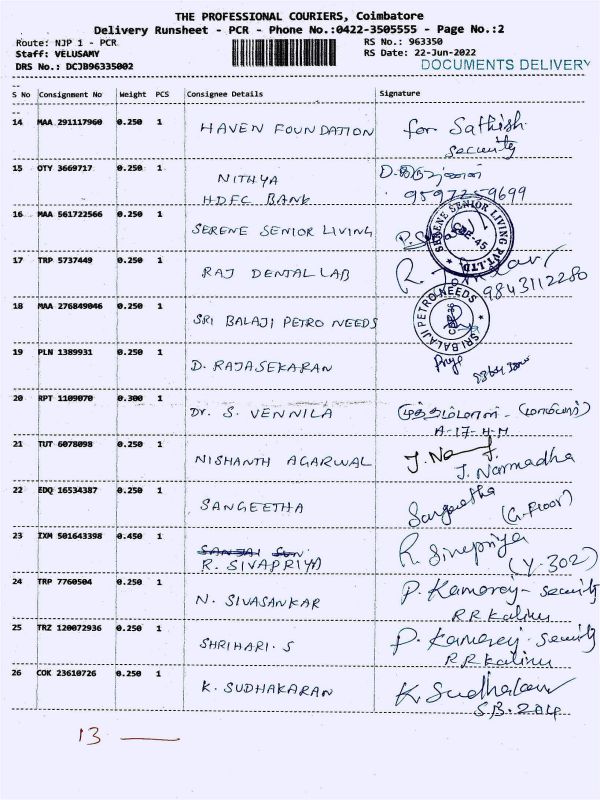 THE PROFESSIONAL COURIERS, Coimbatore
Delivery Runsheet - PCR - Phone No.:0422-3505555 - Page No.:2
Route: NJP 1 - PCR
RS No.: 963350
Staff: VELUSAMY
RS Date: 22-Jun-2022
DRS No.: DCJB96335002
DOCUMENTS DELIVERY
S No Consignment No Weight PCS Consignee Details Signature
14 MAA 291117960 0.250 1 HAVEN FOUNDATION for Sathish
security
15 OTY 3669717 0.250 1 NITHYA
HDFC BANK 9597259699
16 MAA 561722566 0.250 1 SERENE SENIOR LIVING
SERENE SENIOR LIVING PVT.LTD.
CBE-45
17 TRP 5737449 0.250 1 RAJ DENTAL LAB
9843112280
18 MAA 276849046 0.250 1 SRI BALAJI PETRO NEEDS
SRI BALAJI PETRO NEEDS
19 PLN 1389931 0.250 1 D. RAJASEKARAN Priya
20 RPT 1109070 0.300 1 Dr. S. VENNILA
A-17-H-M
21 TUT 6078098 0.250 1 NISHANTH AGARWAL
J. Narmadha
22 EDQ 16534387 0.250 1 SANGEETHA Sangeetha
(G-Floor)
23 IXM 501643398 0.450 1 R. SIVAPRIYA R. Sivapriya
(Y-302)
24 TRP 7760504 0.250 1 N. SIVASANKAR P. Kamaraj - security
RR Kalinus
25 TRZ 120072936 0.250 1 SHRIHARI. S P. Kamaraj - security
RR Kalinus
26 COK 23610726 0.250 1 K. SUDHAKARAN K Sudhakar
S.B. 204
13